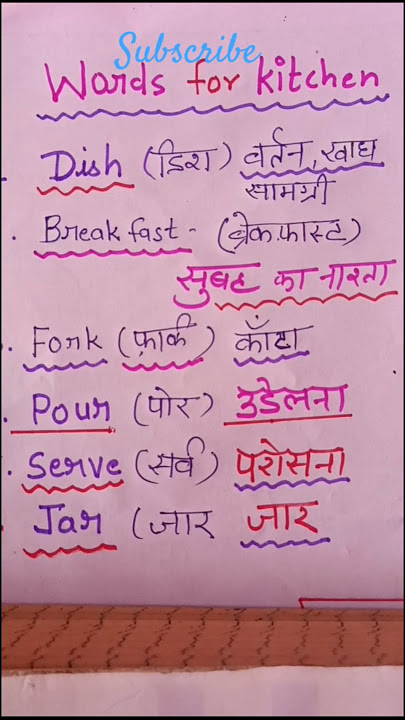 Subscribe
Words for kitchen
Dish (डिश) वर्तन, खाद्य
सामग्री
Breakfast - (ब्रेक.फास्ट)
सुबह का नाश्ता
Fork (फ़ार्क) काँटा
Pour (पोर) उडेलना
Serve (सर्व) परोसना
Jar (जार जार